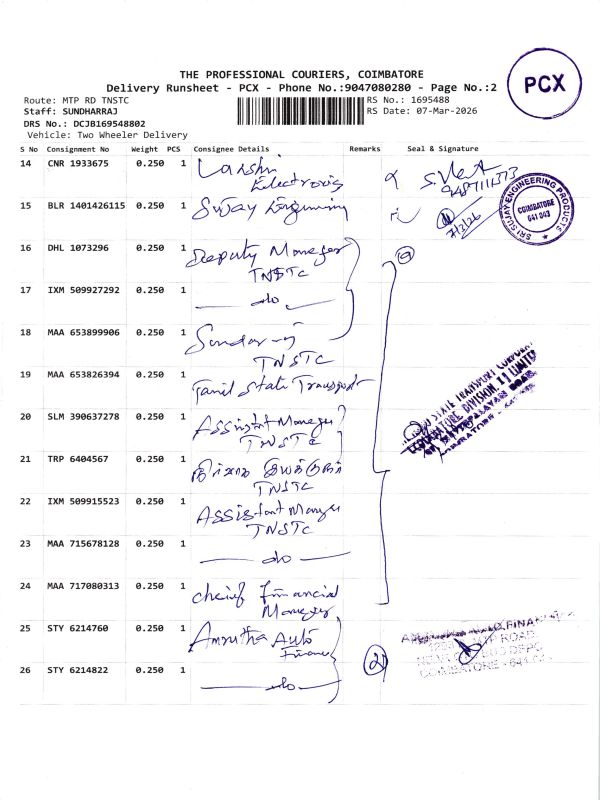 THE PROFESSIONAL COURIERS, COIMBATORE
Delivery Runsheet - PCX - Phone No.:9047080280 - Page No.:2
PCX
Route: MTP RD TNSTC
RS No.: 1695488
Staff: SUNDHARRAJ
RS Date: 07-Mar-2026
DRS No.: DCJB169548802
Vehicle: Two Wheeler Delivery
S No Consignment No Weight PCS Consignee Details Remarks Seal & Signature
14 CNR 1933675 0.250 1
Electronics
15 BLR 1401426115 0.250 1 Sujay
7/3/26
SRI SUJAY ENGINEERING PRODUCTS
COIMBATORE
641 043
16 DHL 1073296 0.250 1 Deputy Manager
TNSTC
17 IXM 509927292 0.250 1 do
18 MAA 653899906 0.250 1
TNSTC
19 MAA 653826394 0.250 1 Tamil State Transport
STATE TRANSPORT
COIMBATORE DIVISION
20 SLM 390637278 0.250 1 Assistant Manager
TNSTC
21 TRP 6404567 0.250 1
TNSTC
22 IXM 509915523 0.250 1 Assistant Manager
TNSTC
23 MAA 715678128 0.250 1 do
24 MAA 717080313 0.250 1 Cheief Financial
Manager
25 STY 6214760 0.250 1 Amrutha Auto
Finance
2
MTP ROAD
COIMBATORE
26 STY 6214822 0.250 1 do